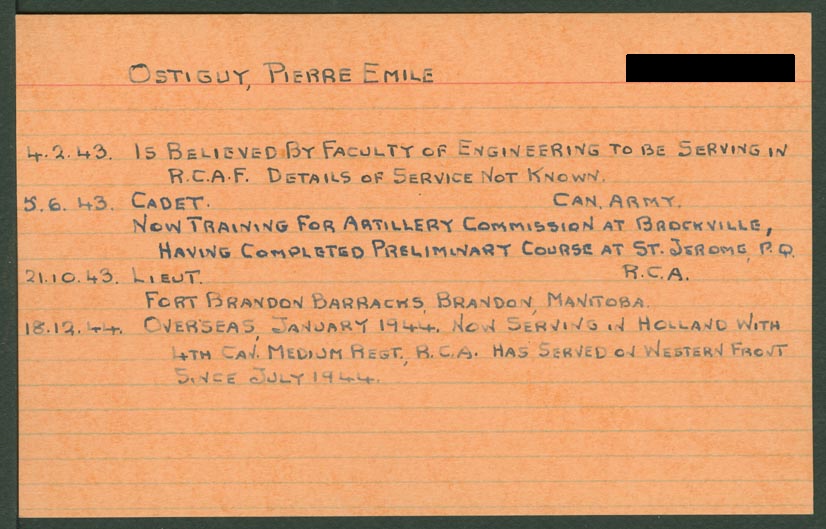 OSTIGUY, PIERRE EMILE
4.2.43. IS BELIEVED BY FACULTY OF ENGINEERING TO BE SERVING IN
R.C.A.F. DETAILS OF SERVICE NOT KNOWN.
5.6.43. CADET. CAN. ARMY.
NOW TRAINING FOR ARTILLERY COMMISSION AT BROCKVILLE,
HAVING COMPLETED PRELIMINARY COURSE AT ST. JEROME, P.Q.
21.10.43. LIEUT. R.C.A.
FORT BRANDON BARRACKS, BRANDON, MANITOBA.
18.12.44. OVERSEAS, JANUARY 1944. NOW SERVING IN HOLLAND WITH
4TH CAN. MEDIUM REGT., R.C.A. HAS SERVED ON WESTERN FRONT
SINCE JULY 1944.